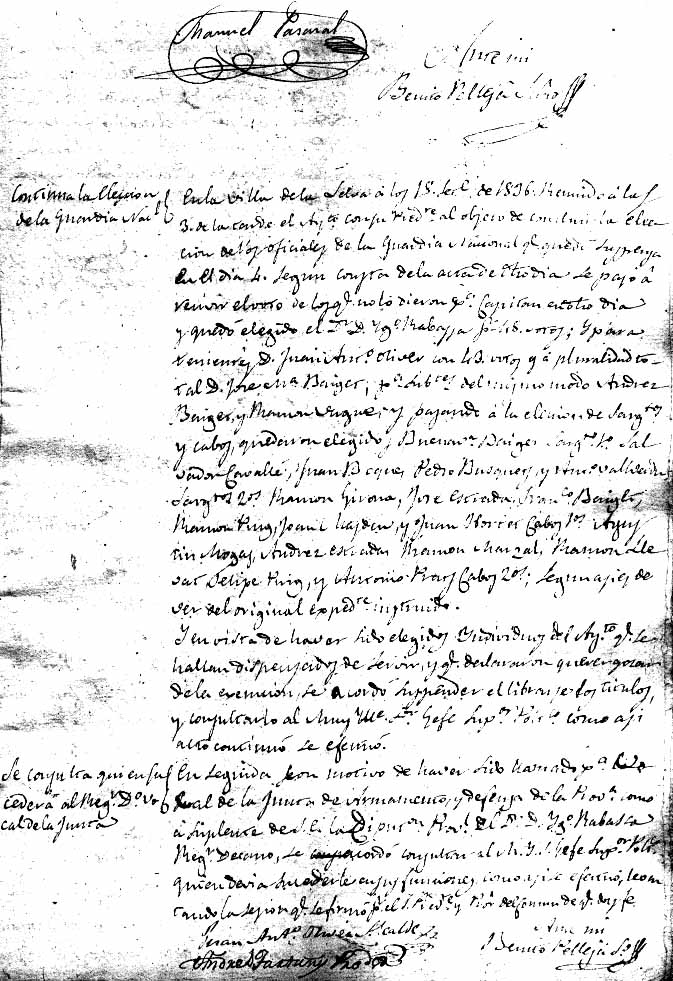 Manuel Pasaral
Ante mi
Benito Pellejà Srio
Continua la Eleccion
de la Guardia Nacl
En la villa de la Selva á los 18 de 1836. Reunido á las
3. de la tarde el Aytº con su Presidte al objeto de continuar la elec
cion de los oficiales de la Guardia Nacional qe quedó suspensa
en el dia 4. segun consta de la acta de dho dia se pasó á
recivir el voto de los qe no lo dieron pª Capitan en dho dia
y quedó elegido el Dr D. Ygº Rabassa pr 48. votos; y para
tenientes D. Juan Antº Oliver con 43 votos y á pluralidad to-
tal D. Jose Mª Baiges; pª Subtes del mismo modo Andrez
Baiges, y Ramon y pasando á la eleccion de Sargtos
y cabos, quedaron elegidos Buenavª Baiges Sargto 1º Sal
vador Cavallé, Juan Pedro Busquets, y Antº
Sargtos 2os Ramon Girona, Jose Estrada, Franco Baiges,
Ramon Puig, y Juan Cabos 1os Agus
tin Andrez Ramon Marzal, Ramon Lle
vat Felipe Puig, y Antonio Cabos 2os; segun asi es de
ver del original expedte instruido.
Y en vista de haver sido elegidos Individuos del Aytº qe se
hallan dispensados de servir, y qe declararon querer gozar
de la exencion, se acordó suspender el librarse los titulos,
y consultarlo al Muy Ille Sor Gefe Supor Polco como asi
acto continuo se efectuó.
Se consulta quien su
cederá al Regr Dº Vo
cal de la Junta
En seguida con motivo de haver sido llamado pª Vo
cal de la Junta de Armamento, y defensa de la Prova como
á Suplente de la Diputon Provl el Dr D. Ygº Rabassa
Regr Decano, se acordó consultar al M. Y. S. Gefe Supor Polco
quien devia sucederle en sus funciones, como asi se efectuó, levan
tando la sesion qe se firmó pr el Sr Presidte y Pror del comun de qe doy fe
Juan Antº Oliver Alcalde
Andres Fortuny Pror
Ante mi
Benito Pellejà Srio